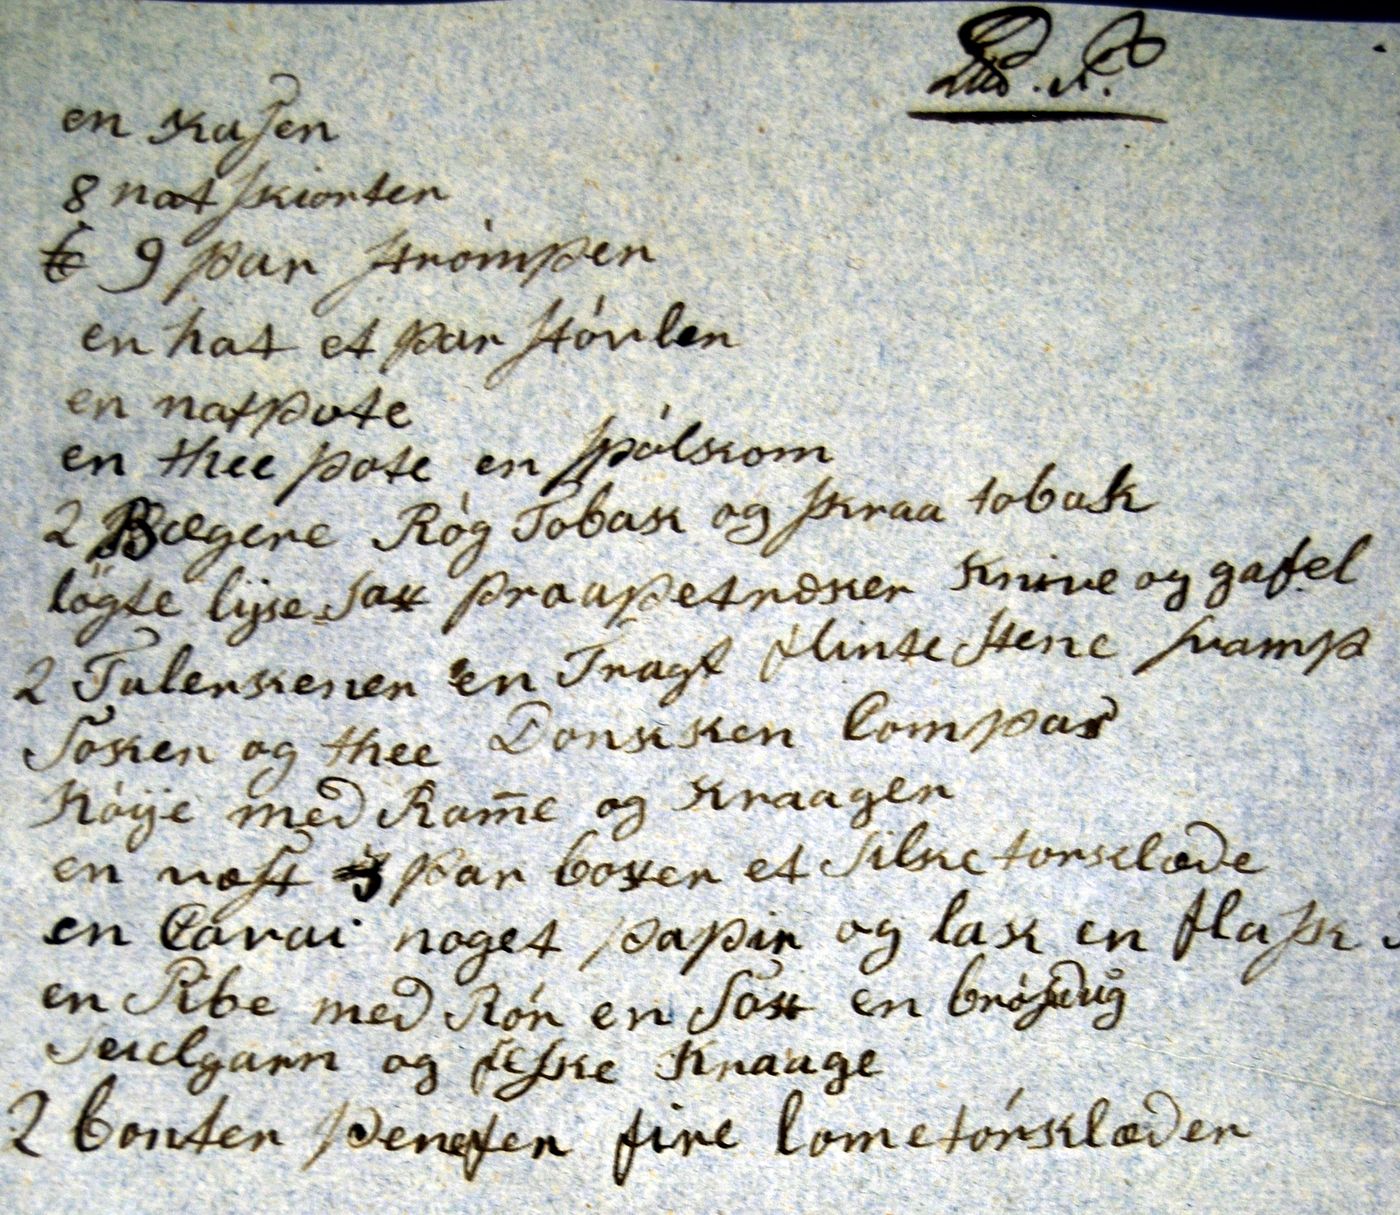 Lud. A.
en kasen
8 nat skiorter
9 par strómper
en hat et par stóvler
en natpote
en thee pote en spólkom
2 Bægere Róg Tobak og skraa tobak
lögte lyse sax praapetræker knive og gafel
2 Talerkener en Tragt flinte stene svamp
Soker og thee Donkken Compas
Kóÿe med Rame og kraager
en væst 3 par boxer et silke torklæde
en Cavai noget papir og lak en flask
en Pibe med Rór en Sax en bróstdug
Seielgarn og fiske kraage
2 bonter penefer fire lometórklæder